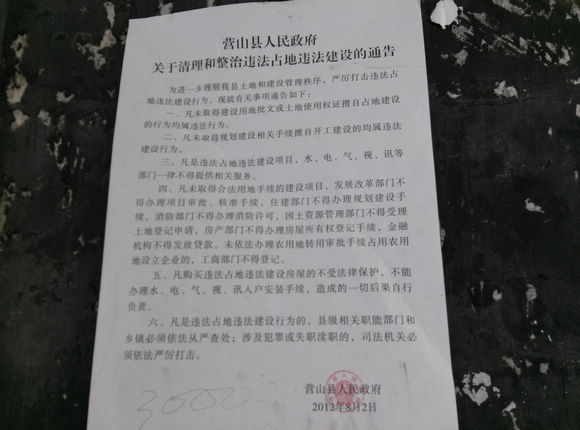 营山县人民政府
关于清理和整治违法占地违法建设的通告
为进一步理顺我县土地和建设管理秩序，严厉打击违法占
地违法建设行为，现就有关事项通告如下：
一、凡未取得建设用地批文或土地使用权证擅自占地建设
的行为均属违法行为。
二、凡未取得规划建设相关手续擅自开工建设的均属违法
建设行为。
三、凡是违法占地违法建设项目，水、电、气、视、讯等
部门一律不得提供相关服务。
四、凡未取得合法用地手续的建设项目，发展改革部门不
得办理项目审批、核准手续，住建部门不得办理规划建设手
续，消防部门不得办理消防许可，国土资源管理部门不得受理
土地登记申请，房产部门不得办理房屋所有权登记手续，金融
机构不得发放贷款。未依法办理农用地转用审批手续占用农用
地设立企业的，工商部门不得登记。
五、凡购买违法占地违法建设房屋的不受法律保护，不能
办理水、电、气、视、讯入户安装手续，造成的一切后果自行
负责。
六、凡是违法占地违法建设行为的，县级相关职能部门和
乡镇必须依法从严查处；涉及犯罪或失职渎职的，司法机关必
须依法严厉打击。
营山县人民政府
2012年8月2日